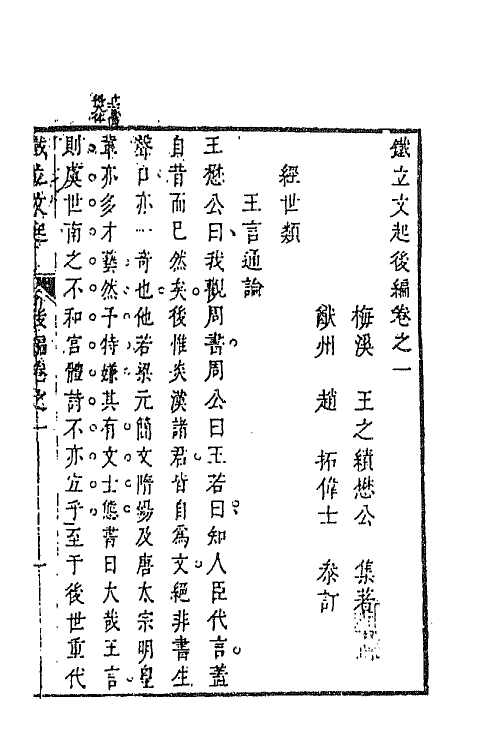 鐵立文起後編卷之一
梅溪 王之績懋公 集著
歙州 趙 拓偉士 叅訂
經世類
王言通論
王懋公曰我觀周書周公曰王若曰知人臣代言蓋
自昔而已然矣後惟炎漢諸君皆自爲文絕非書生
聲口亦一奇也他若梁元簡文隋煬及唐太宗明皇
軰亦多才藝然予特嫌其有文士態書曰大哉王言
則虞世南之不和宮體詩不亦宜乎至于後世重代
鐵立文起 後編卷之一